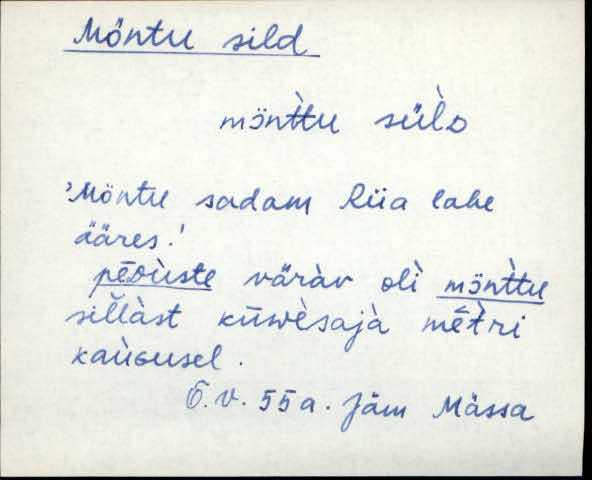 Möntu sild
mönt̀tu sǜlᴅ
'Möntu sadam Riia lahe
ääres.'
pēᴅùste väràv olì mönt̀tu
sil̆làst kūwèsajà mēt̀ri
kaùɢusel.
Õ.V. 55a. Jäm Mässa